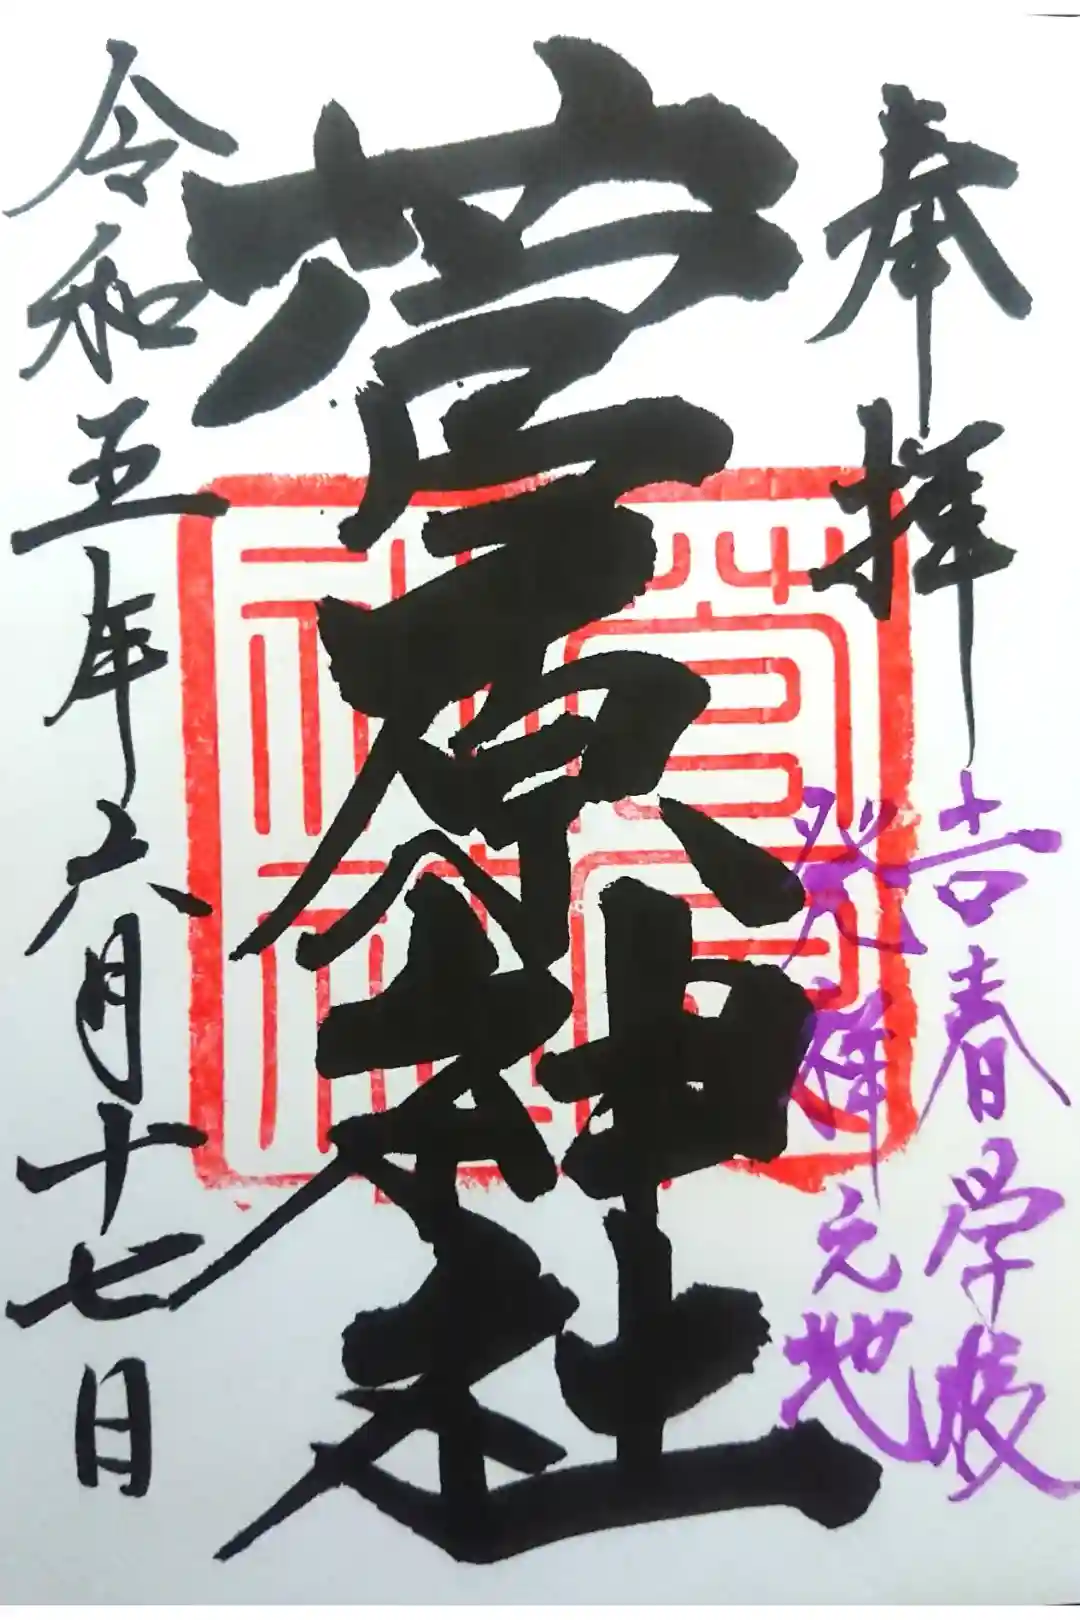 奉拝
吉春学校
発祥之地
菅原神社
菅原神社
令和五年六月十七日